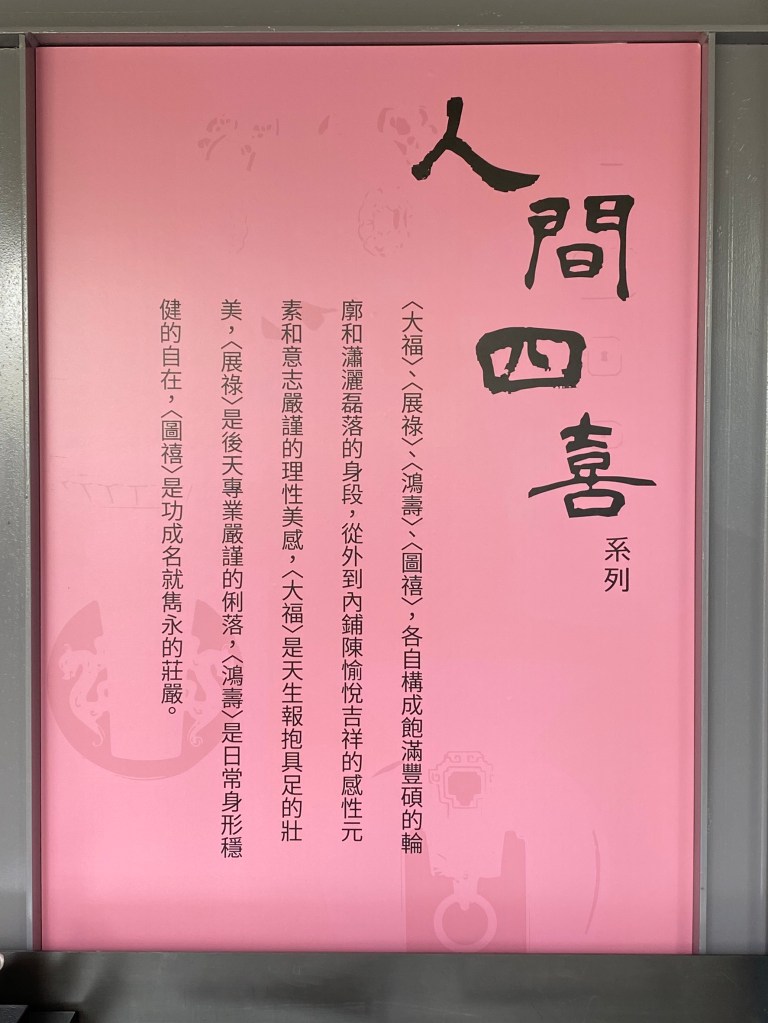 人間四喜
系列
〈大福〉、〈展祿〉、〈鴻壽〉、〈圖禧〉，各自構成飽滿豐碩的輪
廓和瀟灑磊落的身段，從外到內鋪陳愉悅吉祥的感性元
素和意志嚴謹的理性美感，〈大福〉是天生報抱具足的壯
美，〈展祿〉是後天專業嚴謹的俐落，〈鴻壽〉是日常身形穩
健的自在，〈圖禧〉是功成名就雋永的莊嚴。